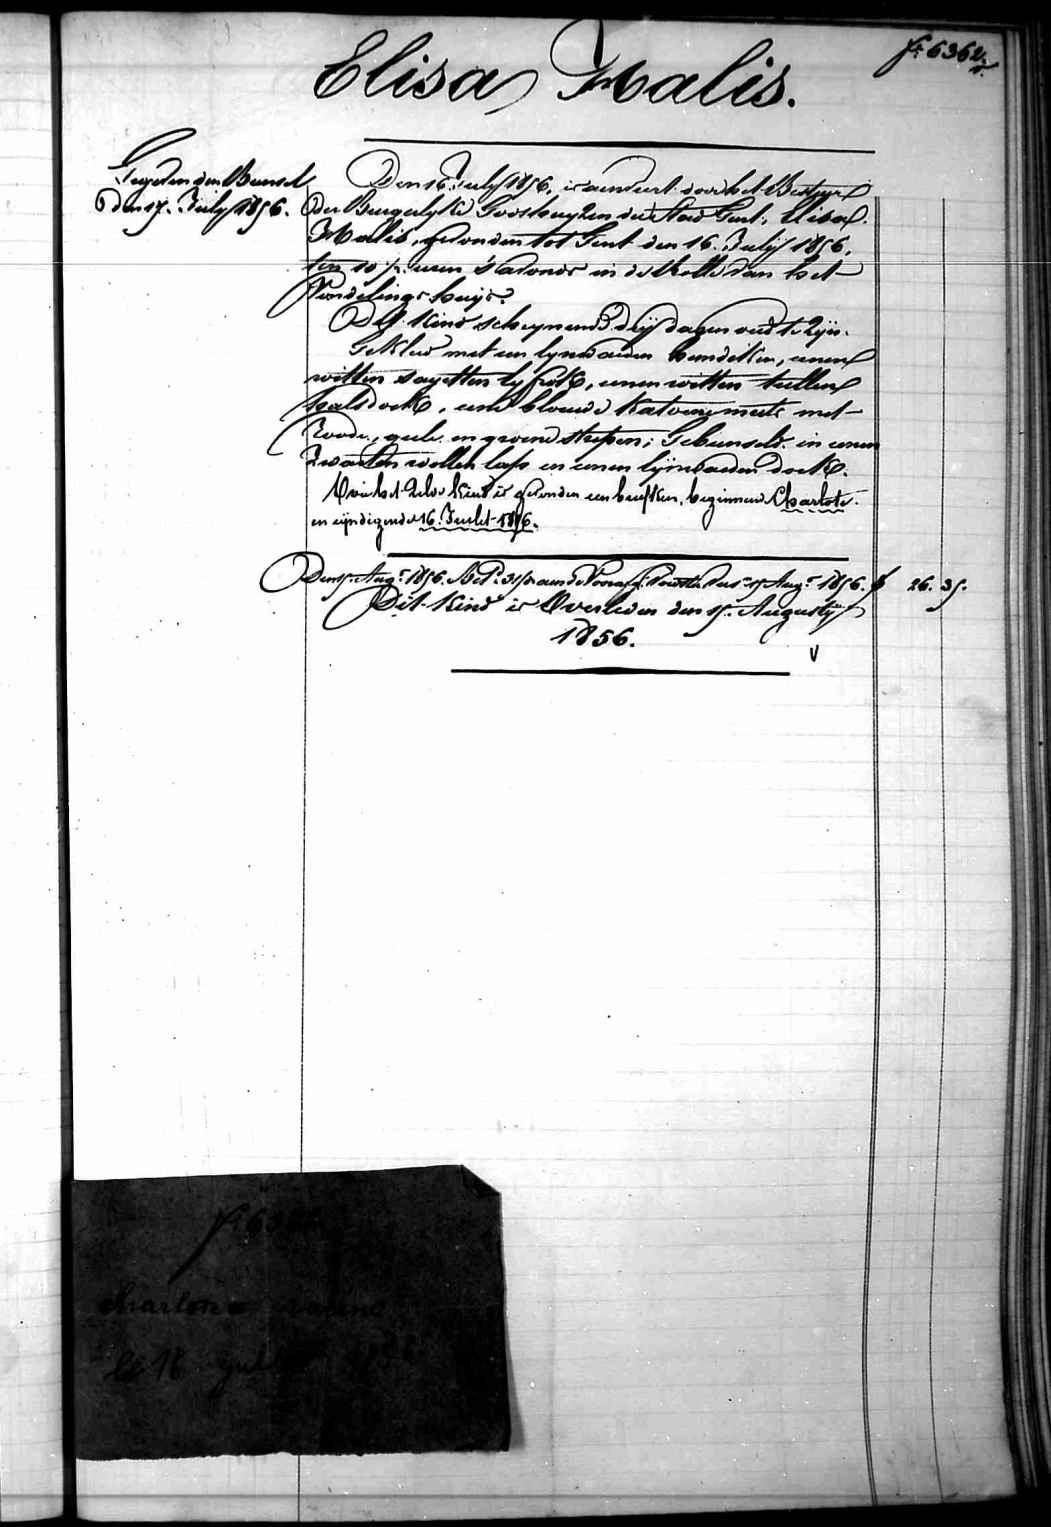 fº 6362.
Elisa Malis.
Gegeven den Bunsel
den 17. July 1856.
Den 16. July 1856, is aenveert door het Bestuer
der Burgerlyke Godshuyzen der Stad Gent, Elisa
Malis, gevonden tot Gent den 16. July 1856,
ten 10 uren 's avonds in de Rolle van het
Vondelingshuys.
Dit kind scheynende dry dagen oud te zyn.
Gekleed met een lynwaeden hemdeken, eenen
witten sayetten lyfrok, eenen witten tullen
halsdoek, eene blauwe katoene muts met
roode, geele en groene strepen; Gebunseld in eenen
zwarten wollen lap en eenen lynwaeden doek.
By het zelve kind is gevonden een briefken, beginnende Charlote
en eyndigende 16. Juilet 1856.
Den 17. Augt. 1856. aen de 17 Augt. 1856. f 26. 35.
Dit kind is Overleden den 17. Augusty
1856.
V
fº 636
Charlote
le 16 juillet 1856